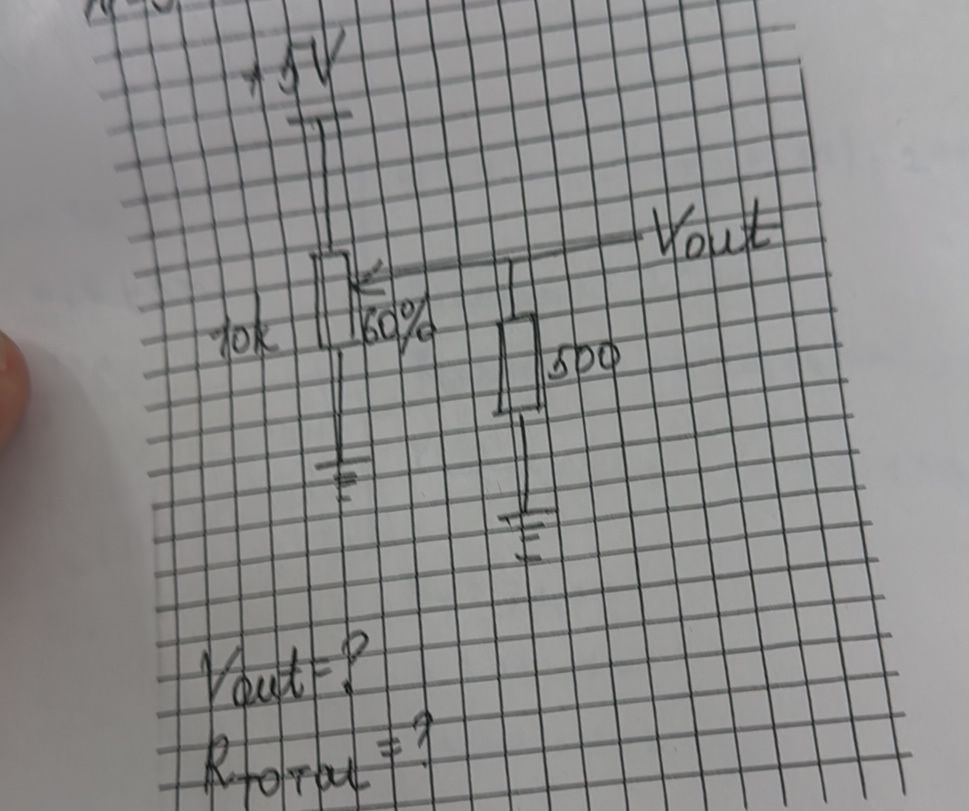 +5V
Vout
10k
60%
500
Vout=?
RTOTAL=?